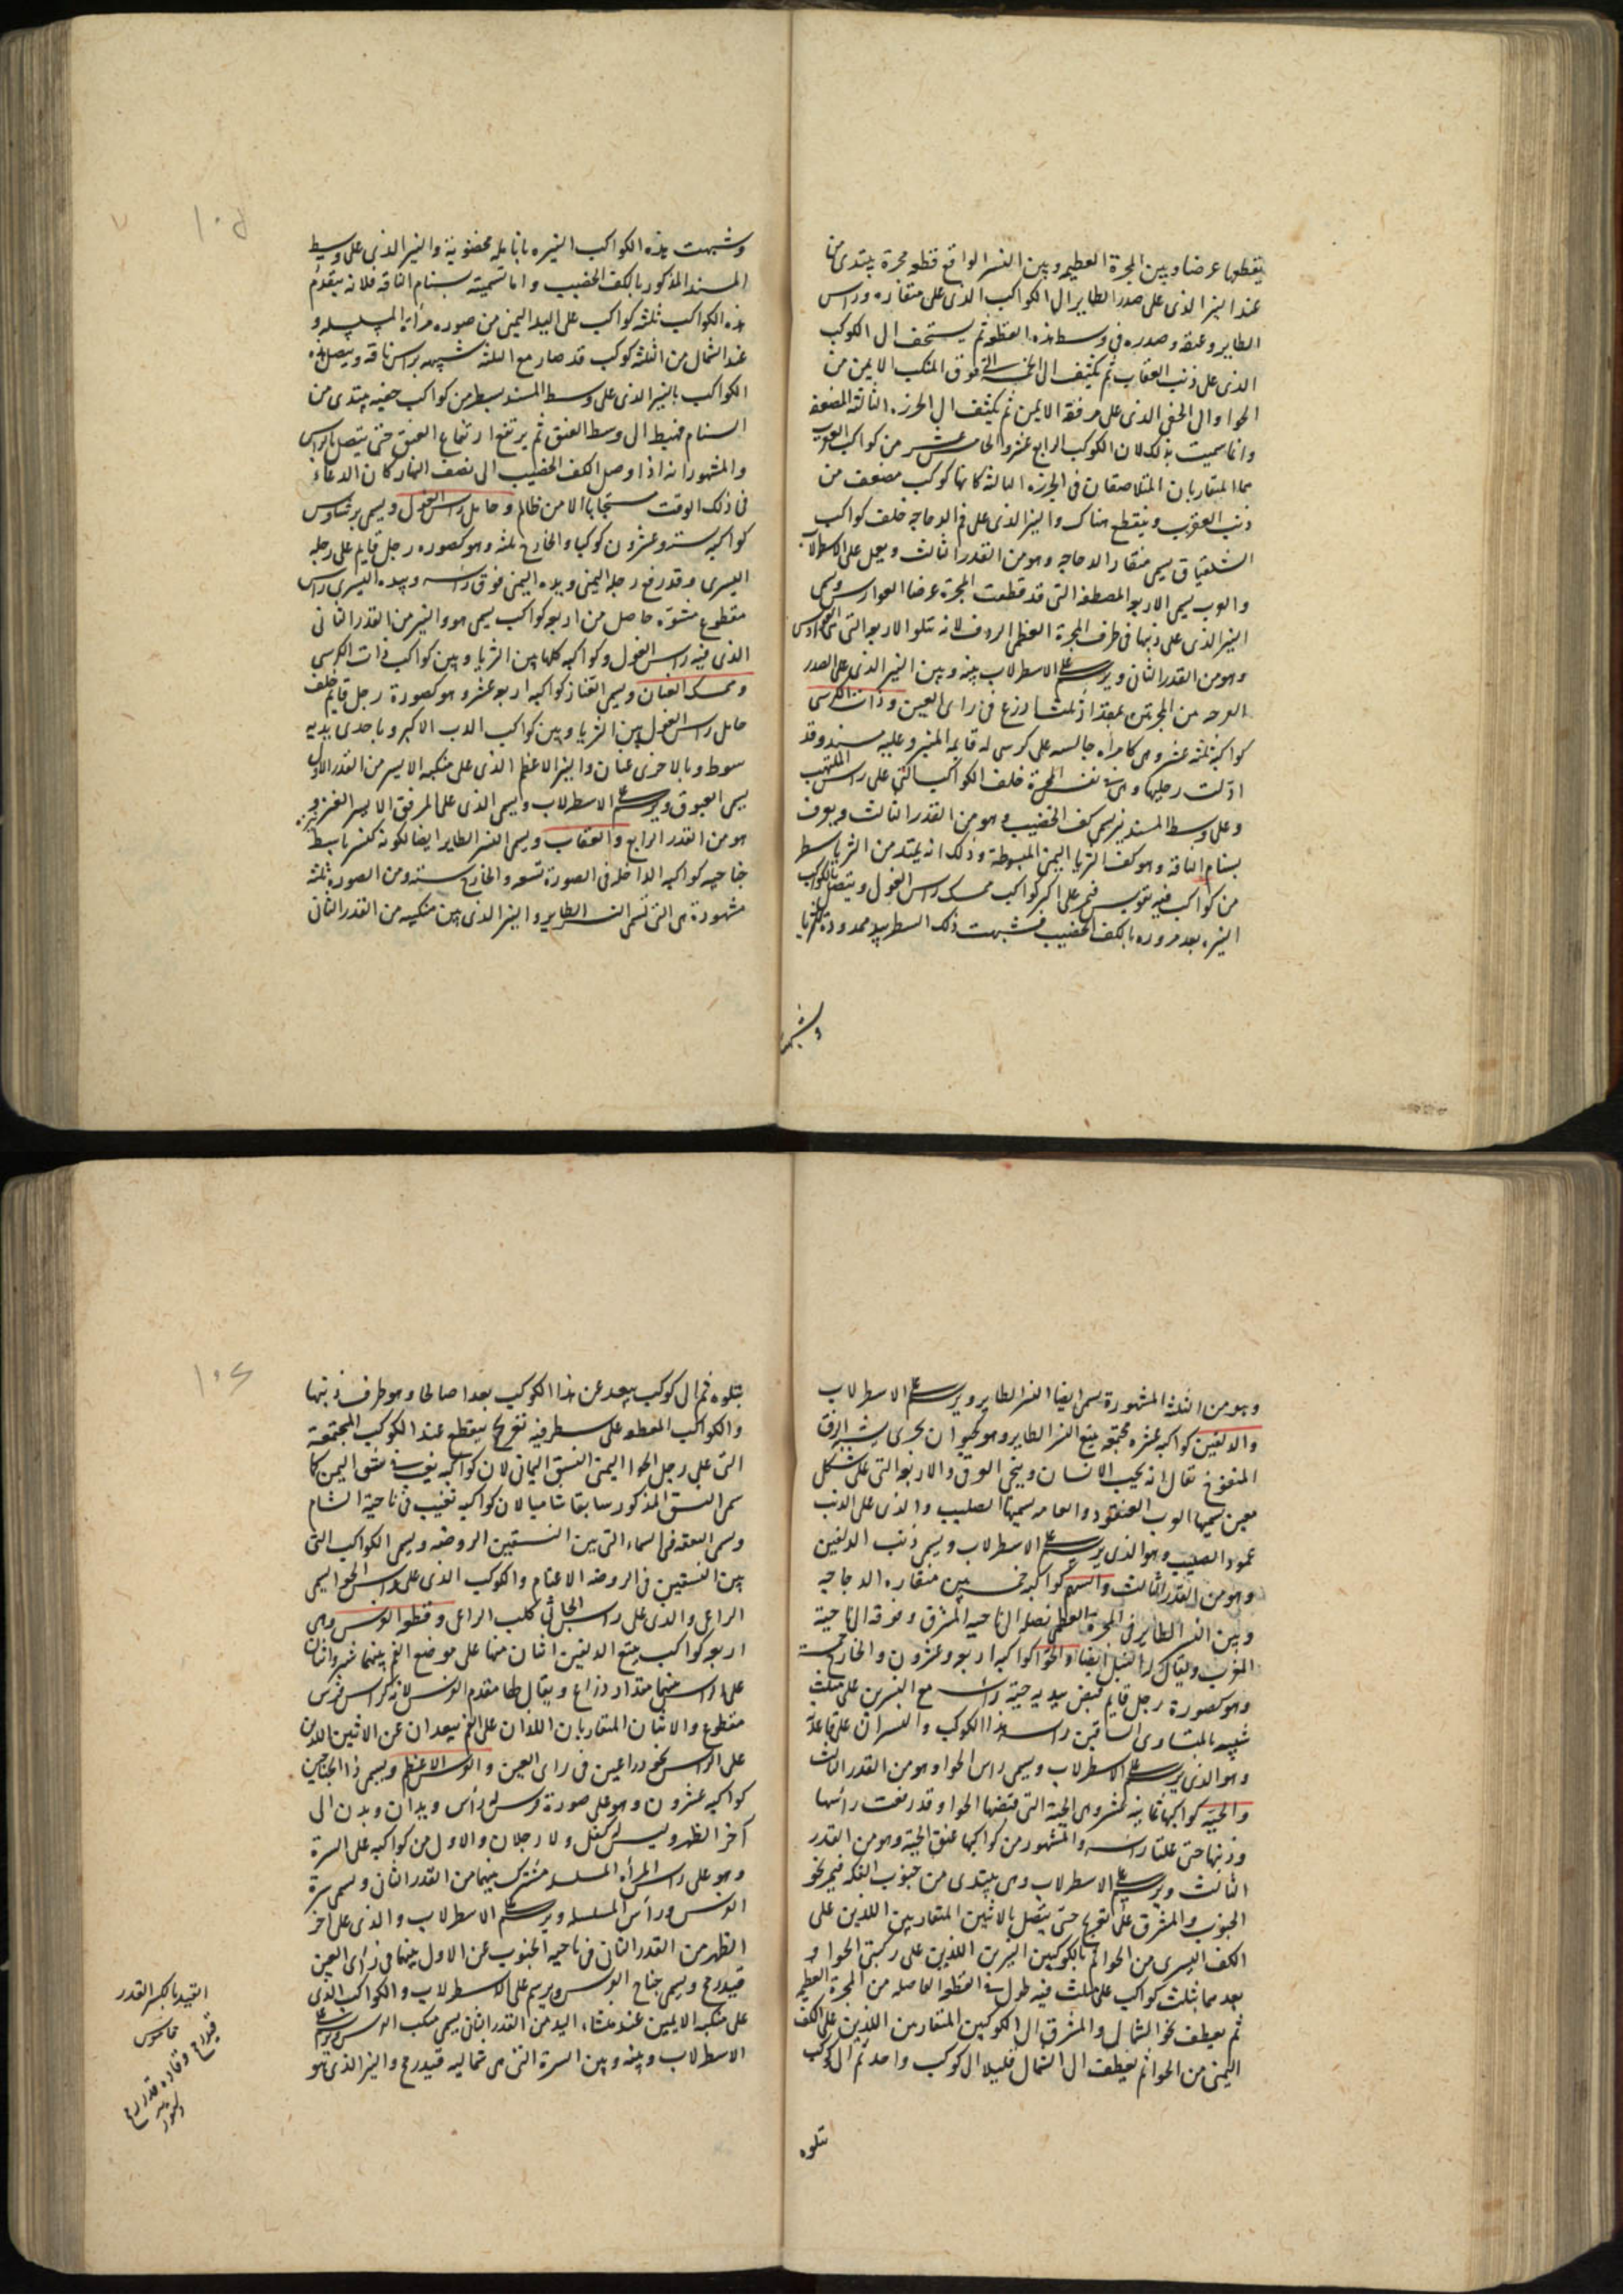 يقطعها عرضا وبين المجرة العظيمه وبين النسر الواقع قطعه مجرة يبتدى من
عند النير الذى على صدر الطاير الى الكواكب الذى على منقاره وراس
الطاير وعنقه وصدره فى وسط هذه القطعه ثم يستخف الى الكوكب
الذى على ذنب العقاب ثم يكثف الى فوق المنكب الايمن من
الحوا والى الخفى الذى على مرفقه الايمن ثم يكثف الى الخرزه الثالثه المضعفه
وانما سميت بذلك لان الكوكب الرابع عشر والخامس عشر من كواكب العقرب
هما المتقاربان المتلاصقان فى الخرزه الثالثه كانها كوكب مضعف من
ذنب العقرب وينقطع هناك والنير الذى على فم الدجاجه خلف كواكب
الشلياق يسمى منقار الدجاجه وهو من القدر الثالث ويعمل على الاسطرلاب
والعرب يسمى الاربعه المصطفه التى قد قطعت المجرة عرضا الفوارس ويسمى
النير الذى على ذنبها فى طرف المجرة العظمى الردف لانه تتلو الاربعه التى هى الفوارس
وهو من القدر الثانى ويرسم على الاسطرلاب بينه وبين النير الذى على الصدر
الفرجه من المجرتين بمقدار ثلثة اذرع فى راى العين وذات الكرسى
كواكبه ثلثه عشر وهى كامراه جالسه على كرسى له قايمه المنبر وعليه مسند وقد
ادلت رجليها وهى فى نفس المجرة خلف الكواكب التى على راس الملتهب
وعلى وسط المسند نير يسمى كف الخضيب وهو من القدر الثالث ويعرف
بسنام الناقه وهو كف الثريا اليمنى المبسوطة وذلك انه يمتد من الثريا سطر
من كواكب فيه تقويس فيمر على اكبر كواكب ممسك راس الغول ويتصل بالكواكب
النيره بعد مروره بالكف الخضيب فشبهت ذلك السطر بيد ممدودة للثريا
وشبهت
وشبهت هذه الكواكب النيره بانامله مخضوبة والنير الذى على وسط
المسند المذكور بالكف الخضيب واما تسميته بسنام الناقه فلانه يتقدم
هذه الكواكب ثلثة كواكب على اليد اليمنى من صوره مراة المسلسله و
عند الشمال من الثلثه كوكب قد صار مع الثلثه شبيهه براس ناقه ويتصل هذه
الكواكب بالنير الذى على وسط المسند بسطر من كواكب خفيه يبتدى من
السنام فيهبط الى وسط العنق ثم يرتفع ارتفاع العنق حتى يتصل بالراس
والمشهور انه اذا وصل الكف الخضيب الى نصف النهار كان الدعاء
فى ذلك الوقت مستجابا الا من ظالم وحامل راس الغول ويسمى برشاوس
كواكبه ستة وعشرون كوكبا والخارج ثلثه وهو كصوره رجل قايم على رجله
اليسرى وقد رفع رجله اليمنى ويده اليمنى فوق راسه وبيده اليسرى راس
مقطوع مشوه حاصل من اربعه كواكب يسمى هو والنير من القدر الثانى
الذى فيه راس الغول وكواكبه كلها بين الثريا وبين كواكب ذات الكرسى
وممسك العنان ويسمى العناز كواكبه اربعه عشر وهو كصورة رجل قايم خلف
حامل راس الغول بين الثريا وبين كواكب الدب الاكبر وباحدى يديه
سوط وبالاخرى عنان والنير الاعظم الذى على منكبه الايسر من القدر الاول
يسمى العيوق ويرسم على الاسطرلاب ويسمى الذى على المرفق الايسر العنز و
هو من القدر الرابع والعقاب ويسمى النسر الطاير ايضا لكونه كنسر باسط
جناحيه كواكبه الداخله فى الصورة تسعه والخارج سته ومن الصوره ثلثه
مشهورة هى التى تسمى النسر الطاير والنير الذى بين منكبيه من القدر الثانى
وهو من الثلثه المشهورة يسمى ايضا النسر الطاير ويرسم على الاسطرلاب
والدلفين كواكبه عشره مجتمعه يتبع النسر الطاير وهو كحيوان بحرى يشبه الزق
المنفوخ يقال انه يحب الانسان وينجى الغرقى والاربعه التى على شكل
معين يسميها العرب العنقود والعامه يسميها الصليب والذى على الذنب
عمود الصليب وهو الذى يرسم على الاسطرلاب ويسمى ذنب الدلفين
وهو من القدر الثالث والسهم كواكبه خمسه بين منقاره الدجاجه
وبين النسر الطاير فى المجرة العظمى نصله الى ناحيه المشرق وفوقه الى ناحية
المغرب ويقال له النبل ايضا والحوا كواكبه اربعه وعشرون والخارج خمسة
وهو كصورة رجل قايم قبض بيديه حية راسه مع النسرين على مثلث
شبيه بالمتساوى الساقين راسه هذا الكوكب والنسران على قاعدة
وهو الذى يرسم على الاسطرلاب ويسمى راس الحوا وهو من القدر الثالث
والحية كواكبها ثمانيه عشر وهى الحية التى قبضها الحوا وقد رفعت راسها
وذنبها حتى علتا راسه والمشهور من كواكبها عنق الحية وهو من القدر
الثالث ويرسم على الاسطرلاب وهى يبتدى من جنوب الفكه فيمر نحو
الجنوب والمشرق على تعويج حتى يتصل بالاثنين المتقاربين اللذين على
الكف اليسرى من الحوا ثم بالكوكبين النيرين اللذين على ركبتى الحوا و
بعد مما بثلث كواكب على مثلث فيه طول فى القطعه الفاصله من المجرة العظيمه
ثم يعطف نحو الشمال والمشرق الى الكوكبين المتقاربين اللذين على الكف
اليمنى من الحوا ثم يعطف الى الشمال قليلا الى كوكب واحد ثم الى كوكب
يتلوه
يتلوه ثم الى كوكب يبعد عن هذا الكوكب بعدا صالحا وهو طرف ذنبها
والكواكب المعطوفه على سطر فيه تعويج ينقطع عند الكوكب المجتمعه
التى على رجل الحوا اليمنى النسق اليمانى لان كواكبه يغيب فى شق اليمن كما
سمى النسق المذكور سابقا شاميا لان كواكبه تغيب فى ناحية الشام
وسمى البقعه فى السماء التى بين النسقين الروضه ويسمى الكواكب التى
بين النسقين فى الروضه الاغنام والكوكب الذى على راس الحوا يسمى
الراعى والذى على راس الجاثى كلب الراعى وقطعه الفرس وهى
اربعه كواكب يتبع الدلفين اثنان منها على موضع الفم بينهما شبر واثنان
على راسه بينهما مقدار ذراع ويقال لها مقدم الفرس لانه كراس فرس
مقطوع والاثنان المتقاربان اللذان على الفم يبعدان عن الاثنين اللذين
على الراس نحو ذراعين فى راى العين والفرس الاعظم ويسمى ذا الجناحين
كواكبه عشرون وهو على صورة فرس له راس ويدان وبدن الى
آخر الظهر وليس له كفل ولا رجلان والاول من كواكبه على السرة
وهو على راس المراه المسلسله مشترك بينهما من القدر الثانى ويسمى سرة
الفرس وراس المسلسله ويرسم على الاسطرلاب والذى على آخر
الظهر من القدر الثانى فى ناحيه الجنوب عن الاول بينهما فى راى العين
قيد رمح ويسمى جناح الفرس ويرسم على الاسطرلاب والكواكب الذى
على منكبه الايمن عند منشاء اليد من القدر الثانى يسمى منكب الفرس ويرسم على
الاسطرلاب وبينه وبين السرة التى هى شماليه قيد رمح والنير الذى هو
القيد بالكسر القدر
قاموس